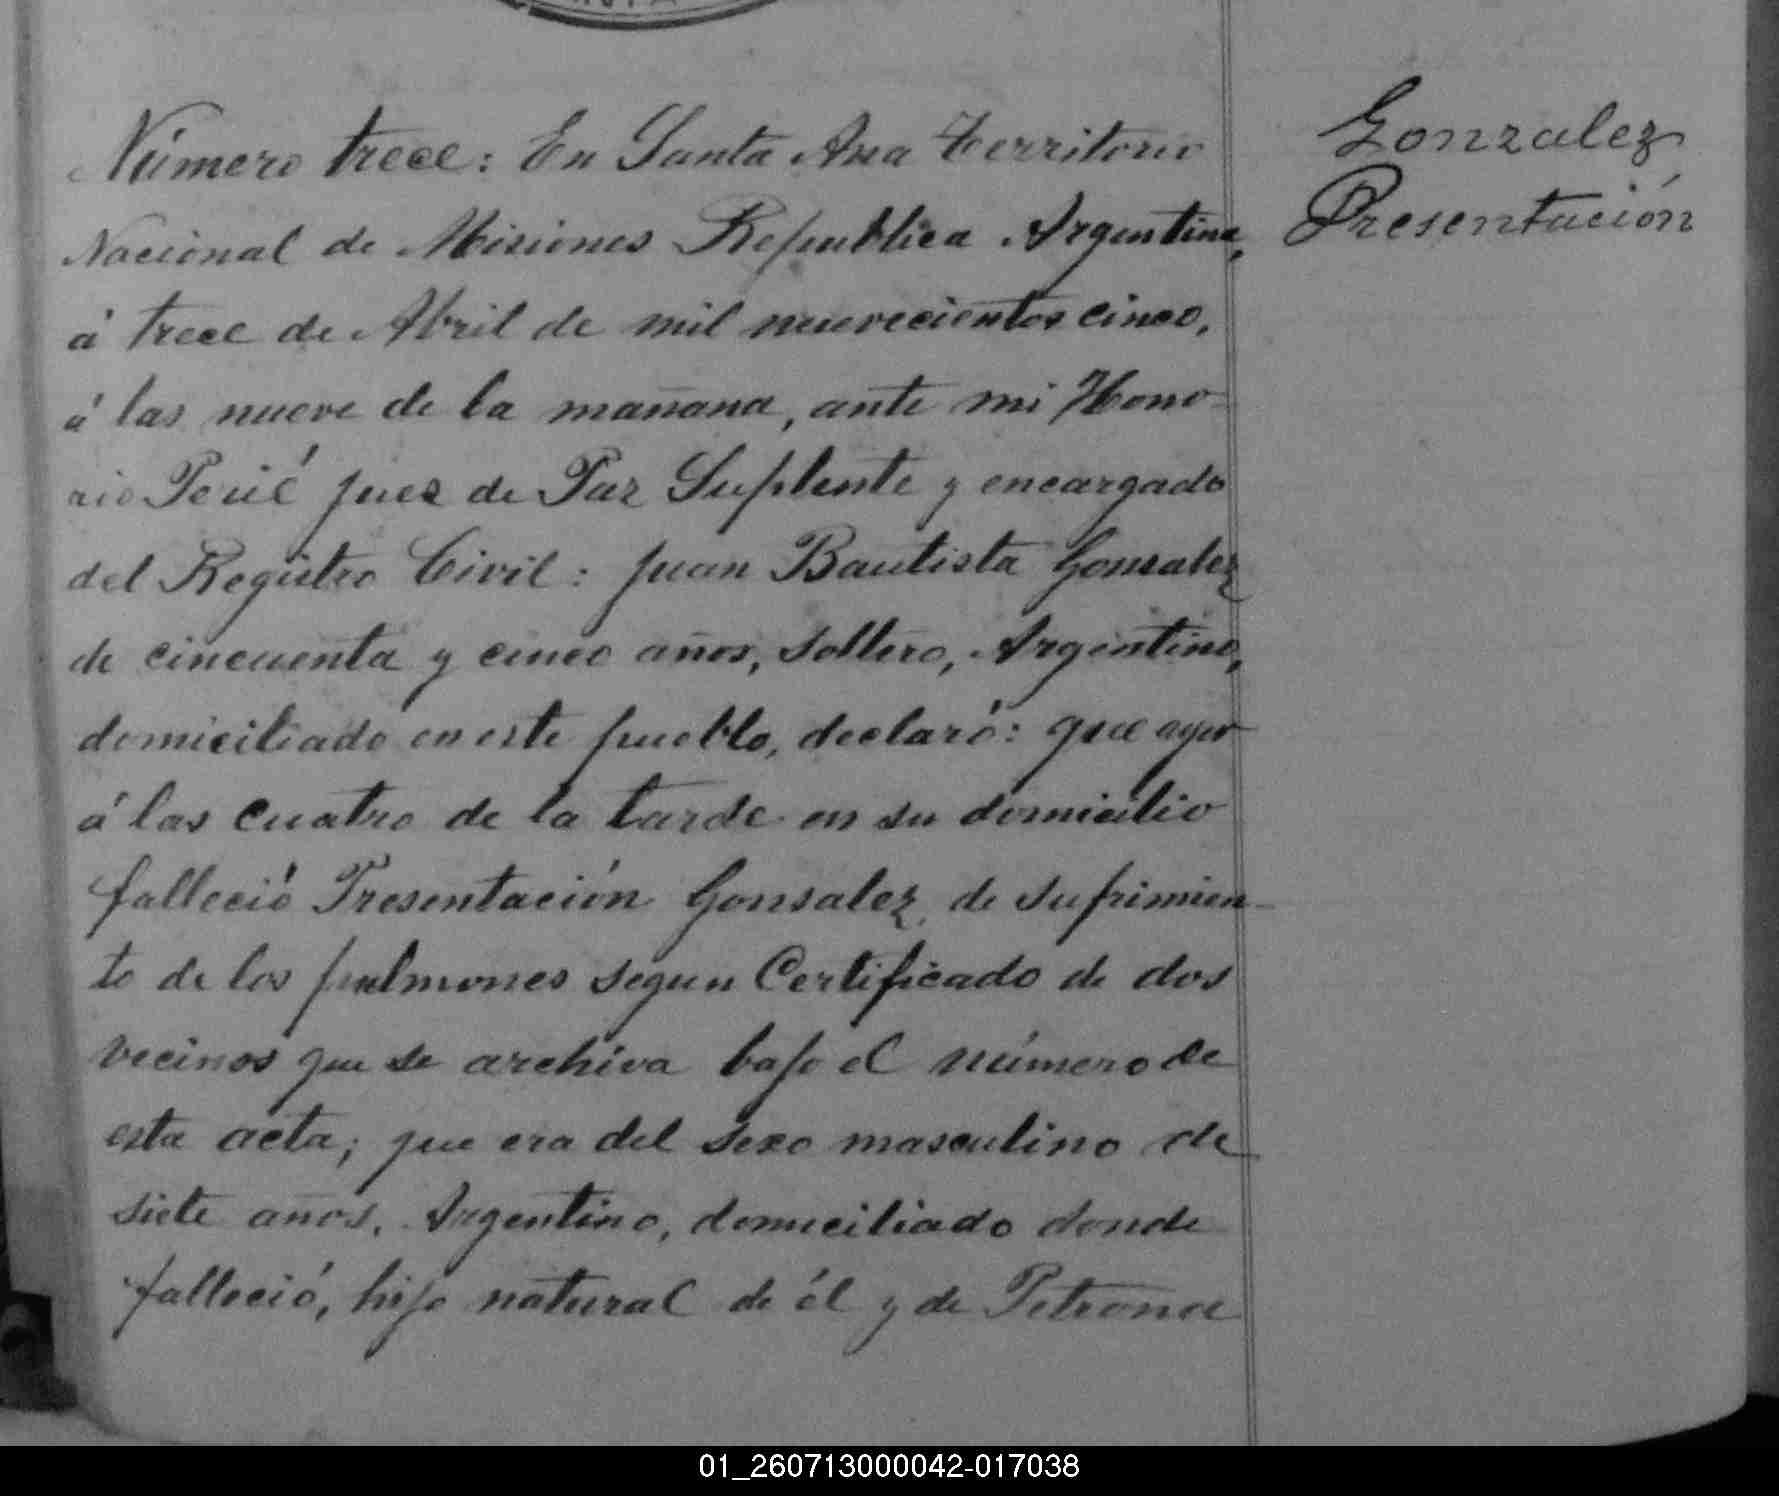 Número trece: En Santa Ana Territorio
Nacional de Misiones Republica Argentina,
á trece de Abril de mil nuevecientos cinco,
á las nueve de la mañana, ante mi Hono-
rio Perié juez de Paz Suplente y encargado
del Registro Civil: Juan Bautista Gonsalez
de cincuenta y cinco años, soltero, Argentino,
domiciliado en este pueblo, declaró: que ayer
á las cuatro de la tarde en su domicilio
falleció Presentación Gonsalez, de sufrimien-
to de los pulmones segun Certificado de dos
vecinos que se archiva bajo el número de
esta acta; que era del sexo masculino de
siete años, Argentino, domiciliado donde
falleció, hijo natural de él y de Petrona
Gonzalez
Presentación
01_260713000042-017038